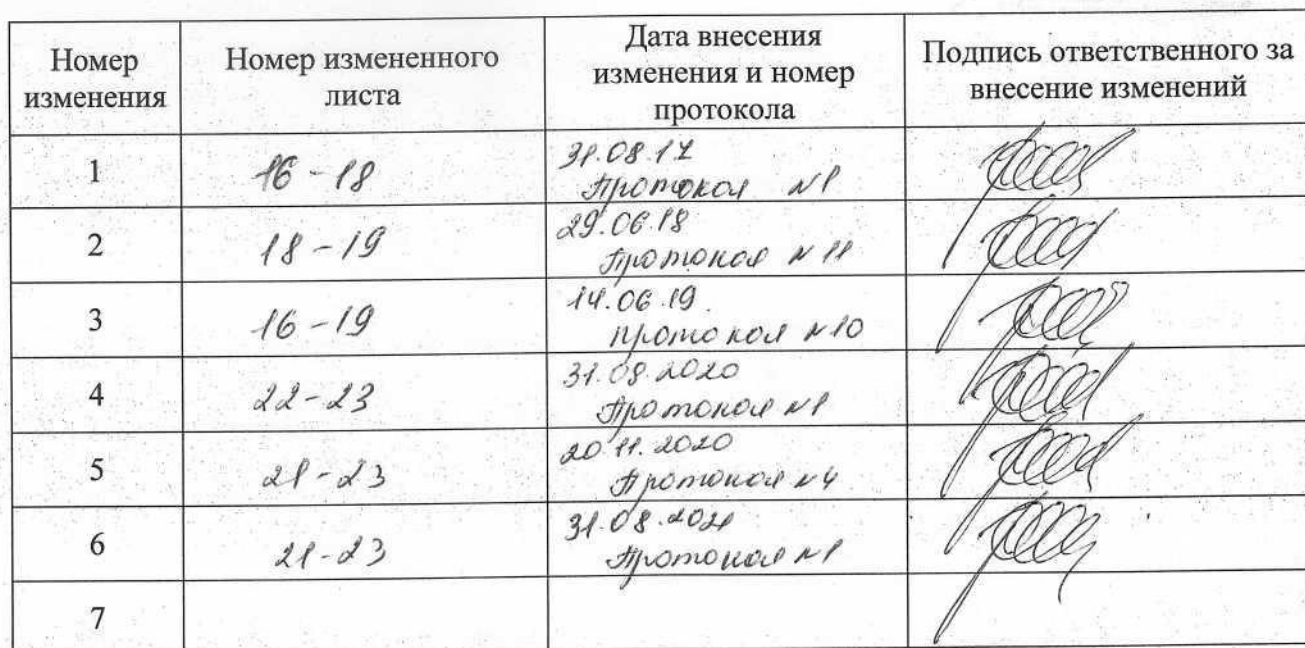 Номер изменения
Номер измененного листа
Дата внесения изменения и номер протокола
Подпись ответственного за внесение изменений
1
16-18
31.08.17
Протокол №1
2
18-19
29.06.18
Протокол №11
3
16-19
14.06.19.
протокол №10
4
22-23
31.08.2020
Протокол №1
5
21-23
20.11.2020
Протокол №4
6
21-23
31.08.2021
Протокол №1
7